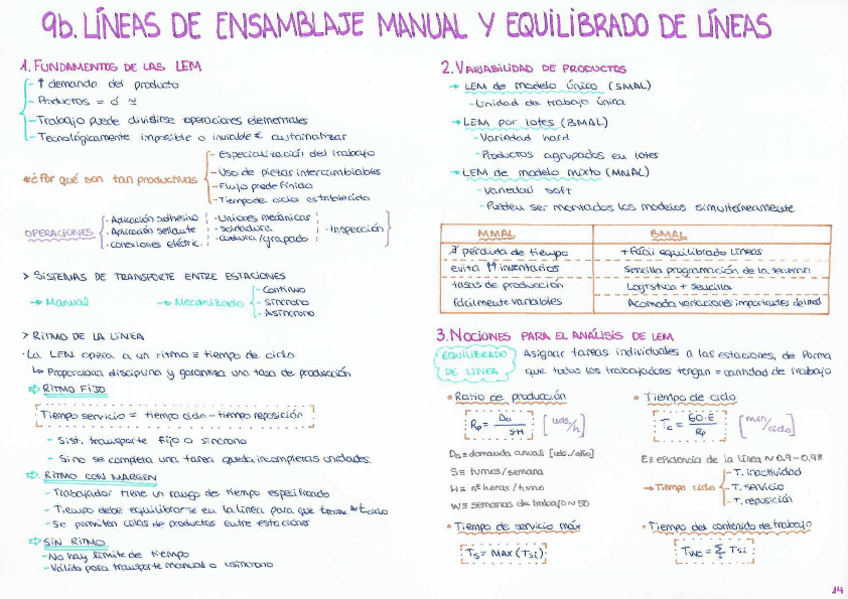 9b. LÍNEAS DE ENSAMBLAJE MANUAL Y EQUILIBRADO DE LÍNEAS
1. FUNDAMENTOS DE LAS LEM
- ↑ demanda del producto
- Productos = ó ≃
- Trabajo puede dividirse operaciones elementales
- Tecnológicamente imposible o inviable € automatizar
*¿Por qué son tan productivas
- Especialización del trabajo
- Uso de piezas intercambiables
- Flujo predefinido
- Tiempo de ciclo establecido
OPERACIONES
- Aplicación adhesivo
- Aplicación sellante
- conexiones eléctric.
- Uniones mecánicas
- soldadura
- costura/grapado
- Inspección
> SISTEMAS DE TRANSPORTE ENTRE ESTACIONES
→ Manual
→ Mecanizado
- Continuo
- síncrono
- Asíncrono
> RITMO DE LA LÍNEA
· La LEM opera a un ritmo = tiempo de ciclo
↳ Proporciona disciplina y garantiza una tasa de producción
⇨ RITMO FIJO
Tiempo servicio = tiempo ciclo - tiempo reposición
- Sist. transporte fijo o síncrono
- Si no se completa una tarea queda incompletas unidades.
⇨ RITMO CON MARGEN
- Trabajador tiene un rango de tiempo especificado
- Tiempo debe equilibrarse en la línea para que
- Se permiten colas de productos entre estaciones
⇨ SIN RITMO
- No hay límite de tiempo
- Válido para transporte manual o asíncrono
2. VARIABILIDAD DE PRODUCTOS
→ LEM de modelo único (SMAL)
- Unidad de trabajo única
→ LEM por lotes (BMAL)
- Variedad hard
- Productos agrupados en lotes
→ LEM de modelo mixto (MMAL)
- Variedad soft
- Pueden ser montados los modelos simultáneamente
MMAL
BMAL
∄ pérdida de tiempo
+ fácil equilibrado líneas
evita ↑↑ inventarios
Sencilla programación de la
tasas de producción
Logística + sencilla
fácilmente variables
Acomoda variaciones importantes del mod
3. NOCIONES PARA EL ANÁLISIS DE LEM
EQUILIBRADO DE LÍNEA
Asignar tareas individuales a las estaciones, de forma
que todos los trabajadores tengan = cantidad de trabajo
• Ratio de producción
Rp = Da / SH [uds/h]
Da = demanda anual [uds./año]
S = turnos/semana
H = nº horas/turno
W = semanas de trabajo ~ 50
• Tiempo de ciclo
Tc = 60·E / Rp [min/ciclo]
E = eficiencia de la línea ~ 0.9 - 0.98
→ Tiempo ciclo
- T. inactividad
- T. servicio
- T. reposición
• Tiempo de servicio máx
Ts = MAX (Tsi)
• Tiempo del contenido de trabajo
Twc = Σ Tsi
14